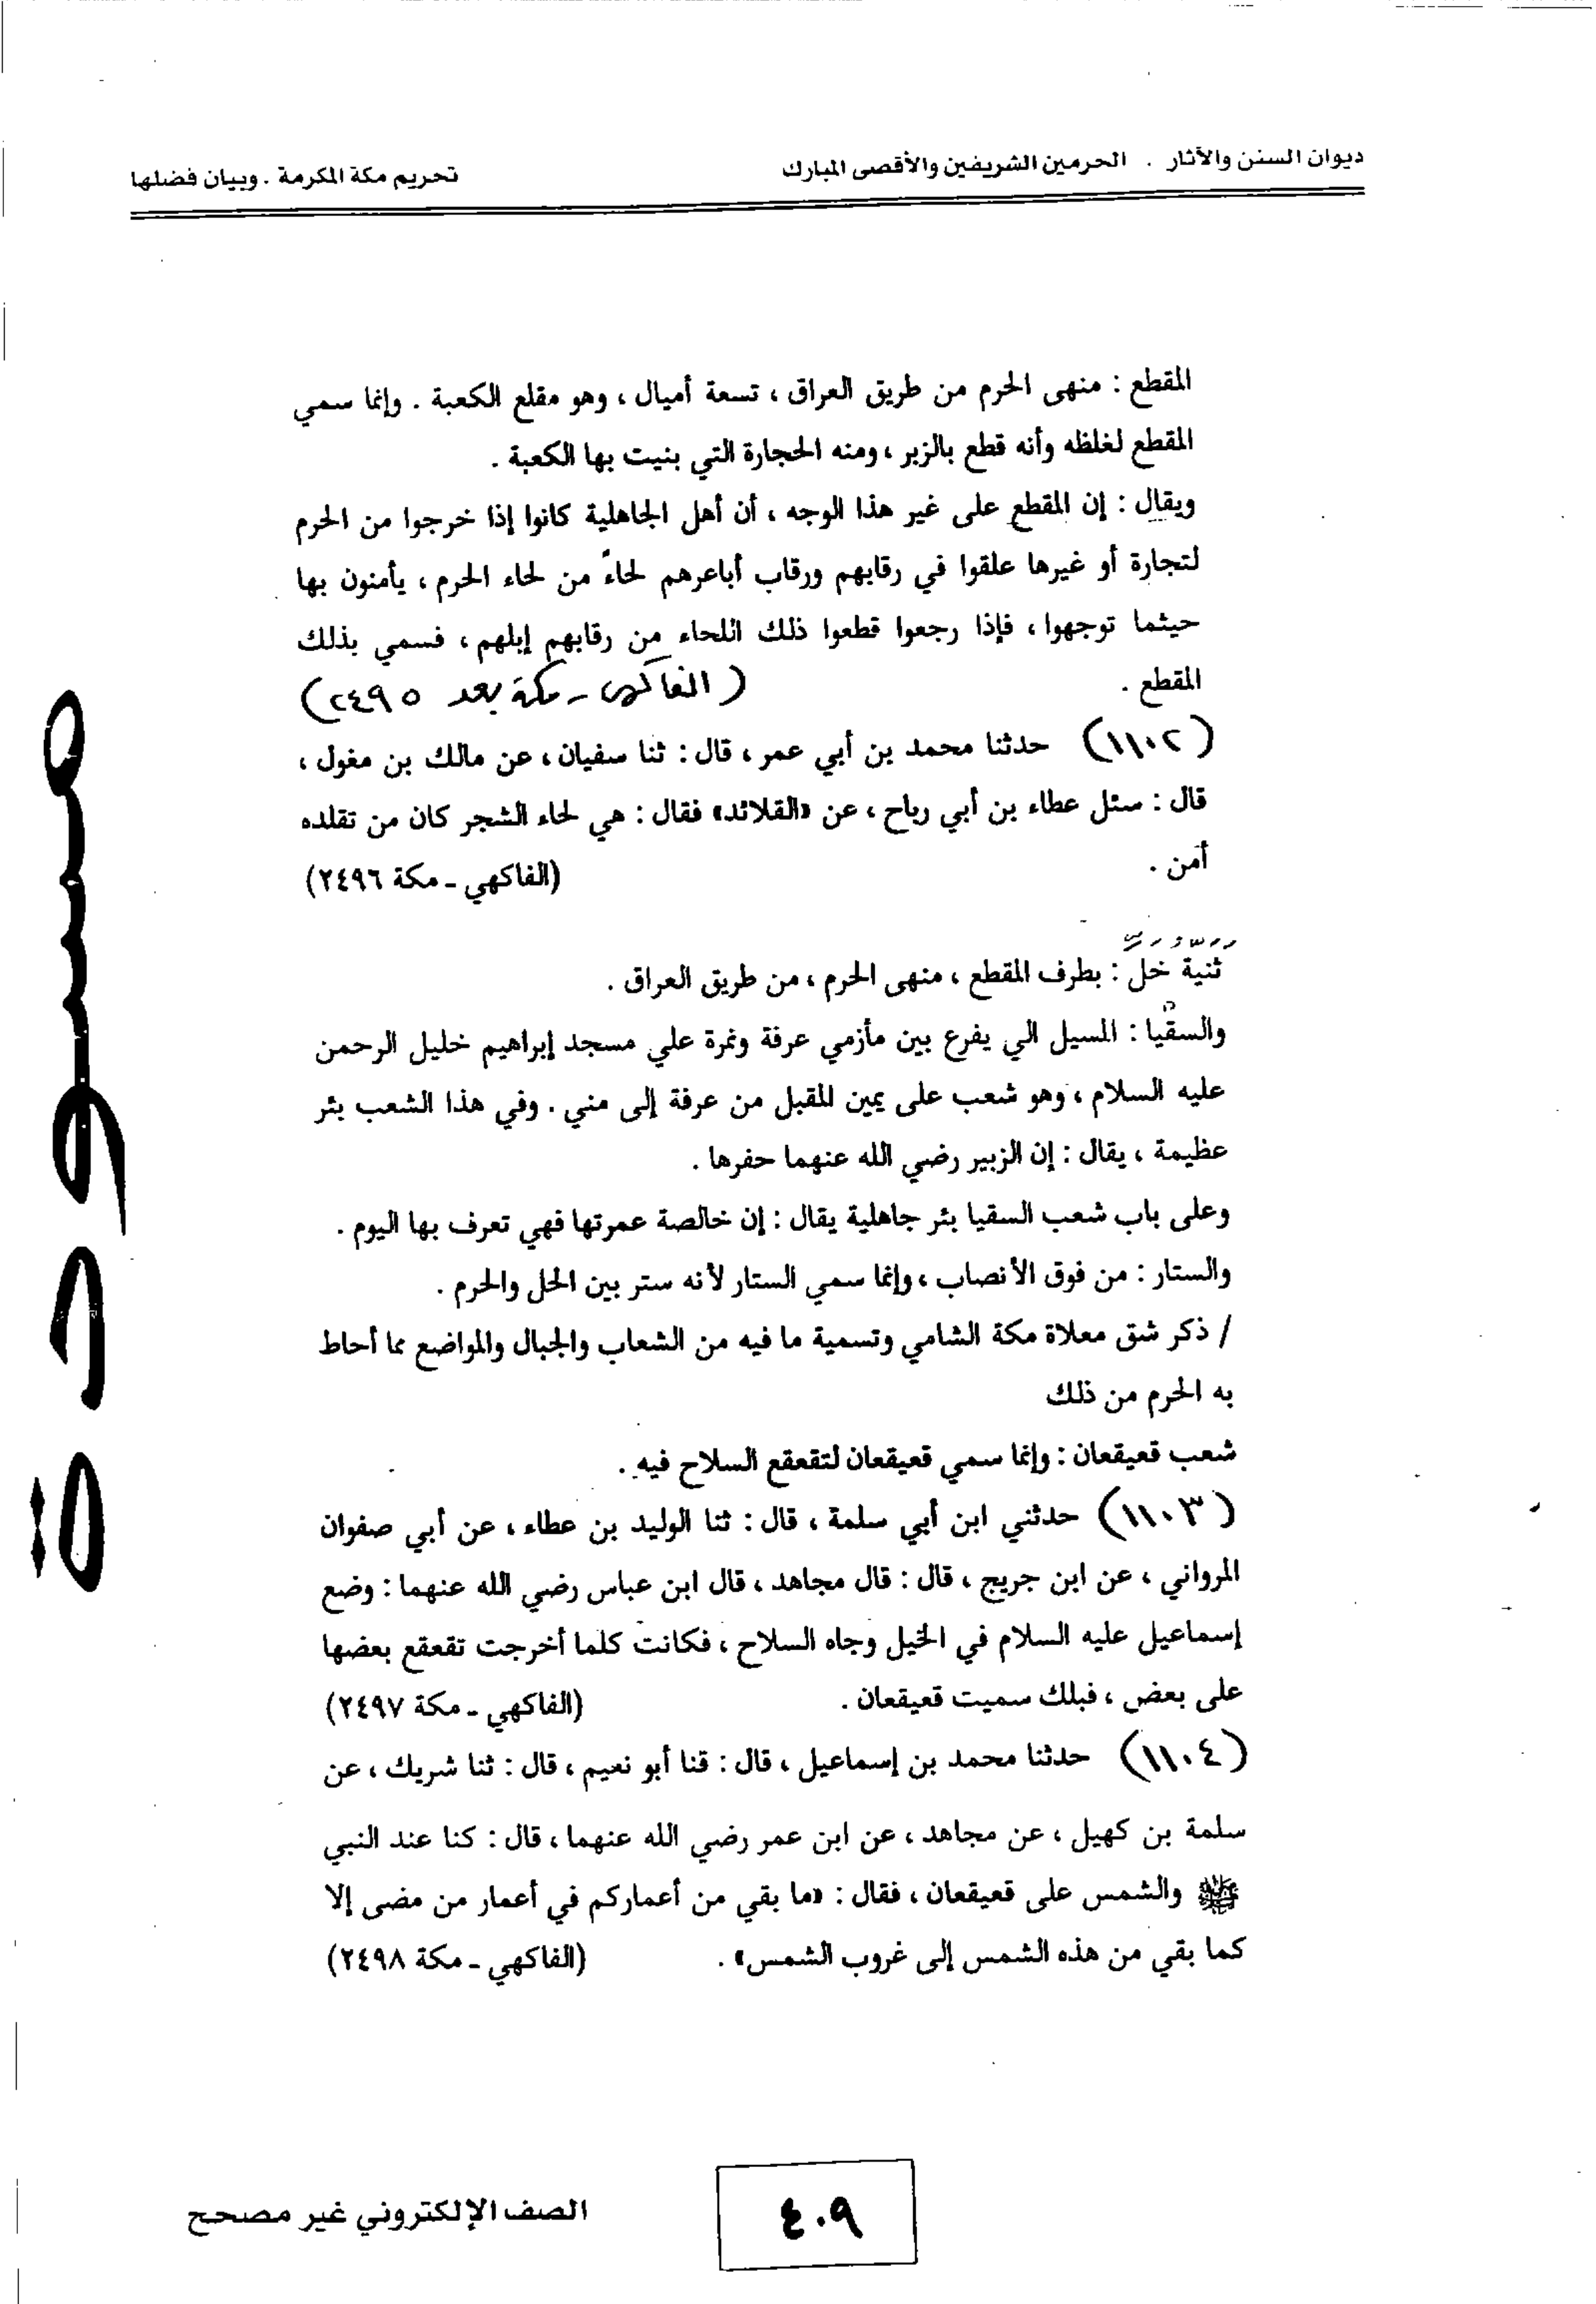 ديوان السنن والآثار . الحرمين الشريفين والأقصى المبارك
تحريم مكة المكرمة . وبيان فضلها
المقطع : منهى الحرم من طريق العراق ، تسعة أميال ، وهو مقلع الكعبة . وإنما سمي
المقطع لغلظه وأنه قطع بالزبر ، ومنه الحجارة التي بنيت بها الكعبة .
ويقال : إن المقطع على غير هذا الوجه ، أن أهل الجاهلية كانوا إذا خرجوا من الحرم
لتجارة أو غيرها علقوا في رقابهم ورقاب أباعرهم لحاءً من لحاء الحرم ، يأمنون بها
حيثما توجهوا ، فإذا رجعوا قطعوا ذلك اللحاء من رقابهم إبلهم ، فسمي بذلك
المقطع . (الفاكهي - مكة بعد ٢٤٩٥)
(١١٠٢) حدثنا محمد بن أبي عمر ، قال : ثنا سفيان ، عن مالك بن مغول ،
قال : سئل عطاء بن أبي رباح ، عن «القلائد» فقال : هي لحاء الشجر كان من تقلده
أمن . (الفاكهي - مكة ٢٤٩٦)
ثنية خل : بطرف المقطع ، منهى الحرم ، من طريق العراق .
والسقيا : المسيل الي يفرع بين مأزمي عرفة ونمرة علي مسجد إبراهيم خليل الرحمن
عليه السلام ، وهو شعب على يمين للمقبل من عرفة إلى مني . وفي هذا الشعب بئر
عظيمة ، يقال : إن الزبير رضي الله عنهما حفرها .
وعلى باب شعب السقيا بئر جاهلية يقال : إن خالصة عمرتها فهي تعرف بها اليوم .
والستار : من فوق الأنصاب ، وإنما سمي الستار لأنه ستر بين الحل والحرم .
/ ذكر شق معلاة مكة الشامي وتسمية ما فيه من الشعاب والجبال والمواضع مما أحاط
به الحرم من ذلك
شعب قعيقعان : وإنما سمي قعيقعان لتقعقع السلاح فيه .
(١١٠٣) حدثني ابن أبي سلمة ، قال : ثنا الوليد بن عطاء ، عن أبي صفوان
المرواني ، عن ابن جريج ، قال : قال مجاهد ، قال ابن عباس رضي الله عنهما : وضع
إسماعيل عليه السلام في الخيل وجاه السلاح ، فكانت كلما أخرجت تقعقع بعضها
على بعض ، فبلك سميت قعيقعان . (الفاكهي - مكة ٢٤٩٧)
(١١٠٤) حدثنا محمد بن إسماعيل ، قال : قنا أبو نعيم ، قال : ثنا شريك ، عن
سلمة بن كهيل ، عن مجاهد ، عن ابن عمر رضي الله عنهما ، قال : كنا عند النبي
ﷺ والشمس على قعيقعان ، فقال : «ما بقي من أعماركم في أعمار من مضى إلا
كما بقي من هذه الشمس إلى غروب الشمس» . (الفاكهي - مكة ٢٤٩٨)
مسودة
٤٠٩
الصف الإلكتروني غير مصحح